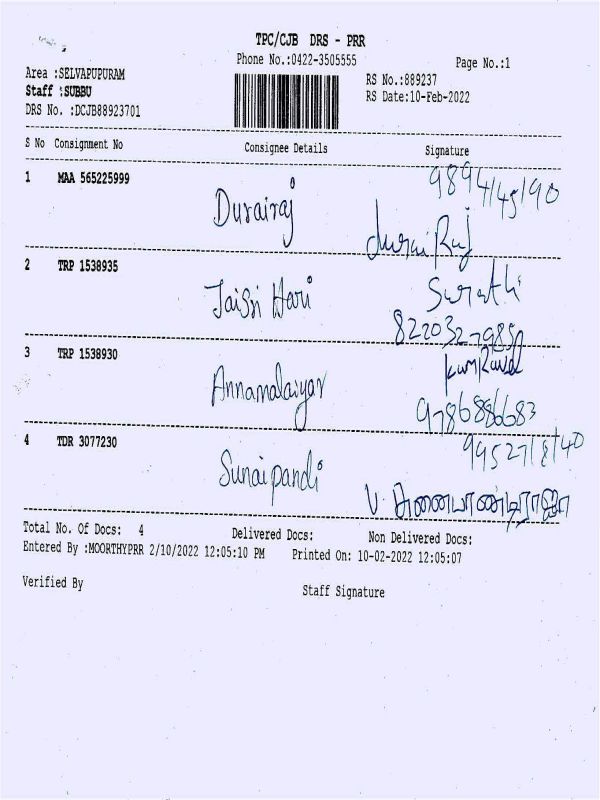 TPC/CJB DRS - PRR
Phone No.:0422-3505555
Page No.:1
Area :SELVAPUPURAM
RS No.:889237
Staff :SUBBU
RS Date:10-Feb-2022
DRS No. :DCJB88923701
S No Consignment No Consignee Details Signature
1 MAA 565225999 Durairaj
durai Raj
2 TRP 1538935 Jaisri Hari
3 TRP 1538930 Annamalaiyar
9786886683
4 TDR 3077230 Sunaipandi
V. சுனைபாண்டிராஜா
Total No. Of Docs: 4 Delivered Docs: Non Delivered Docs:
Entered By :MOORTHYPRR 2/10/2022 12:05:10 PM Printed On: 10-02-2022 12:05:07
Verified By Staff Signature